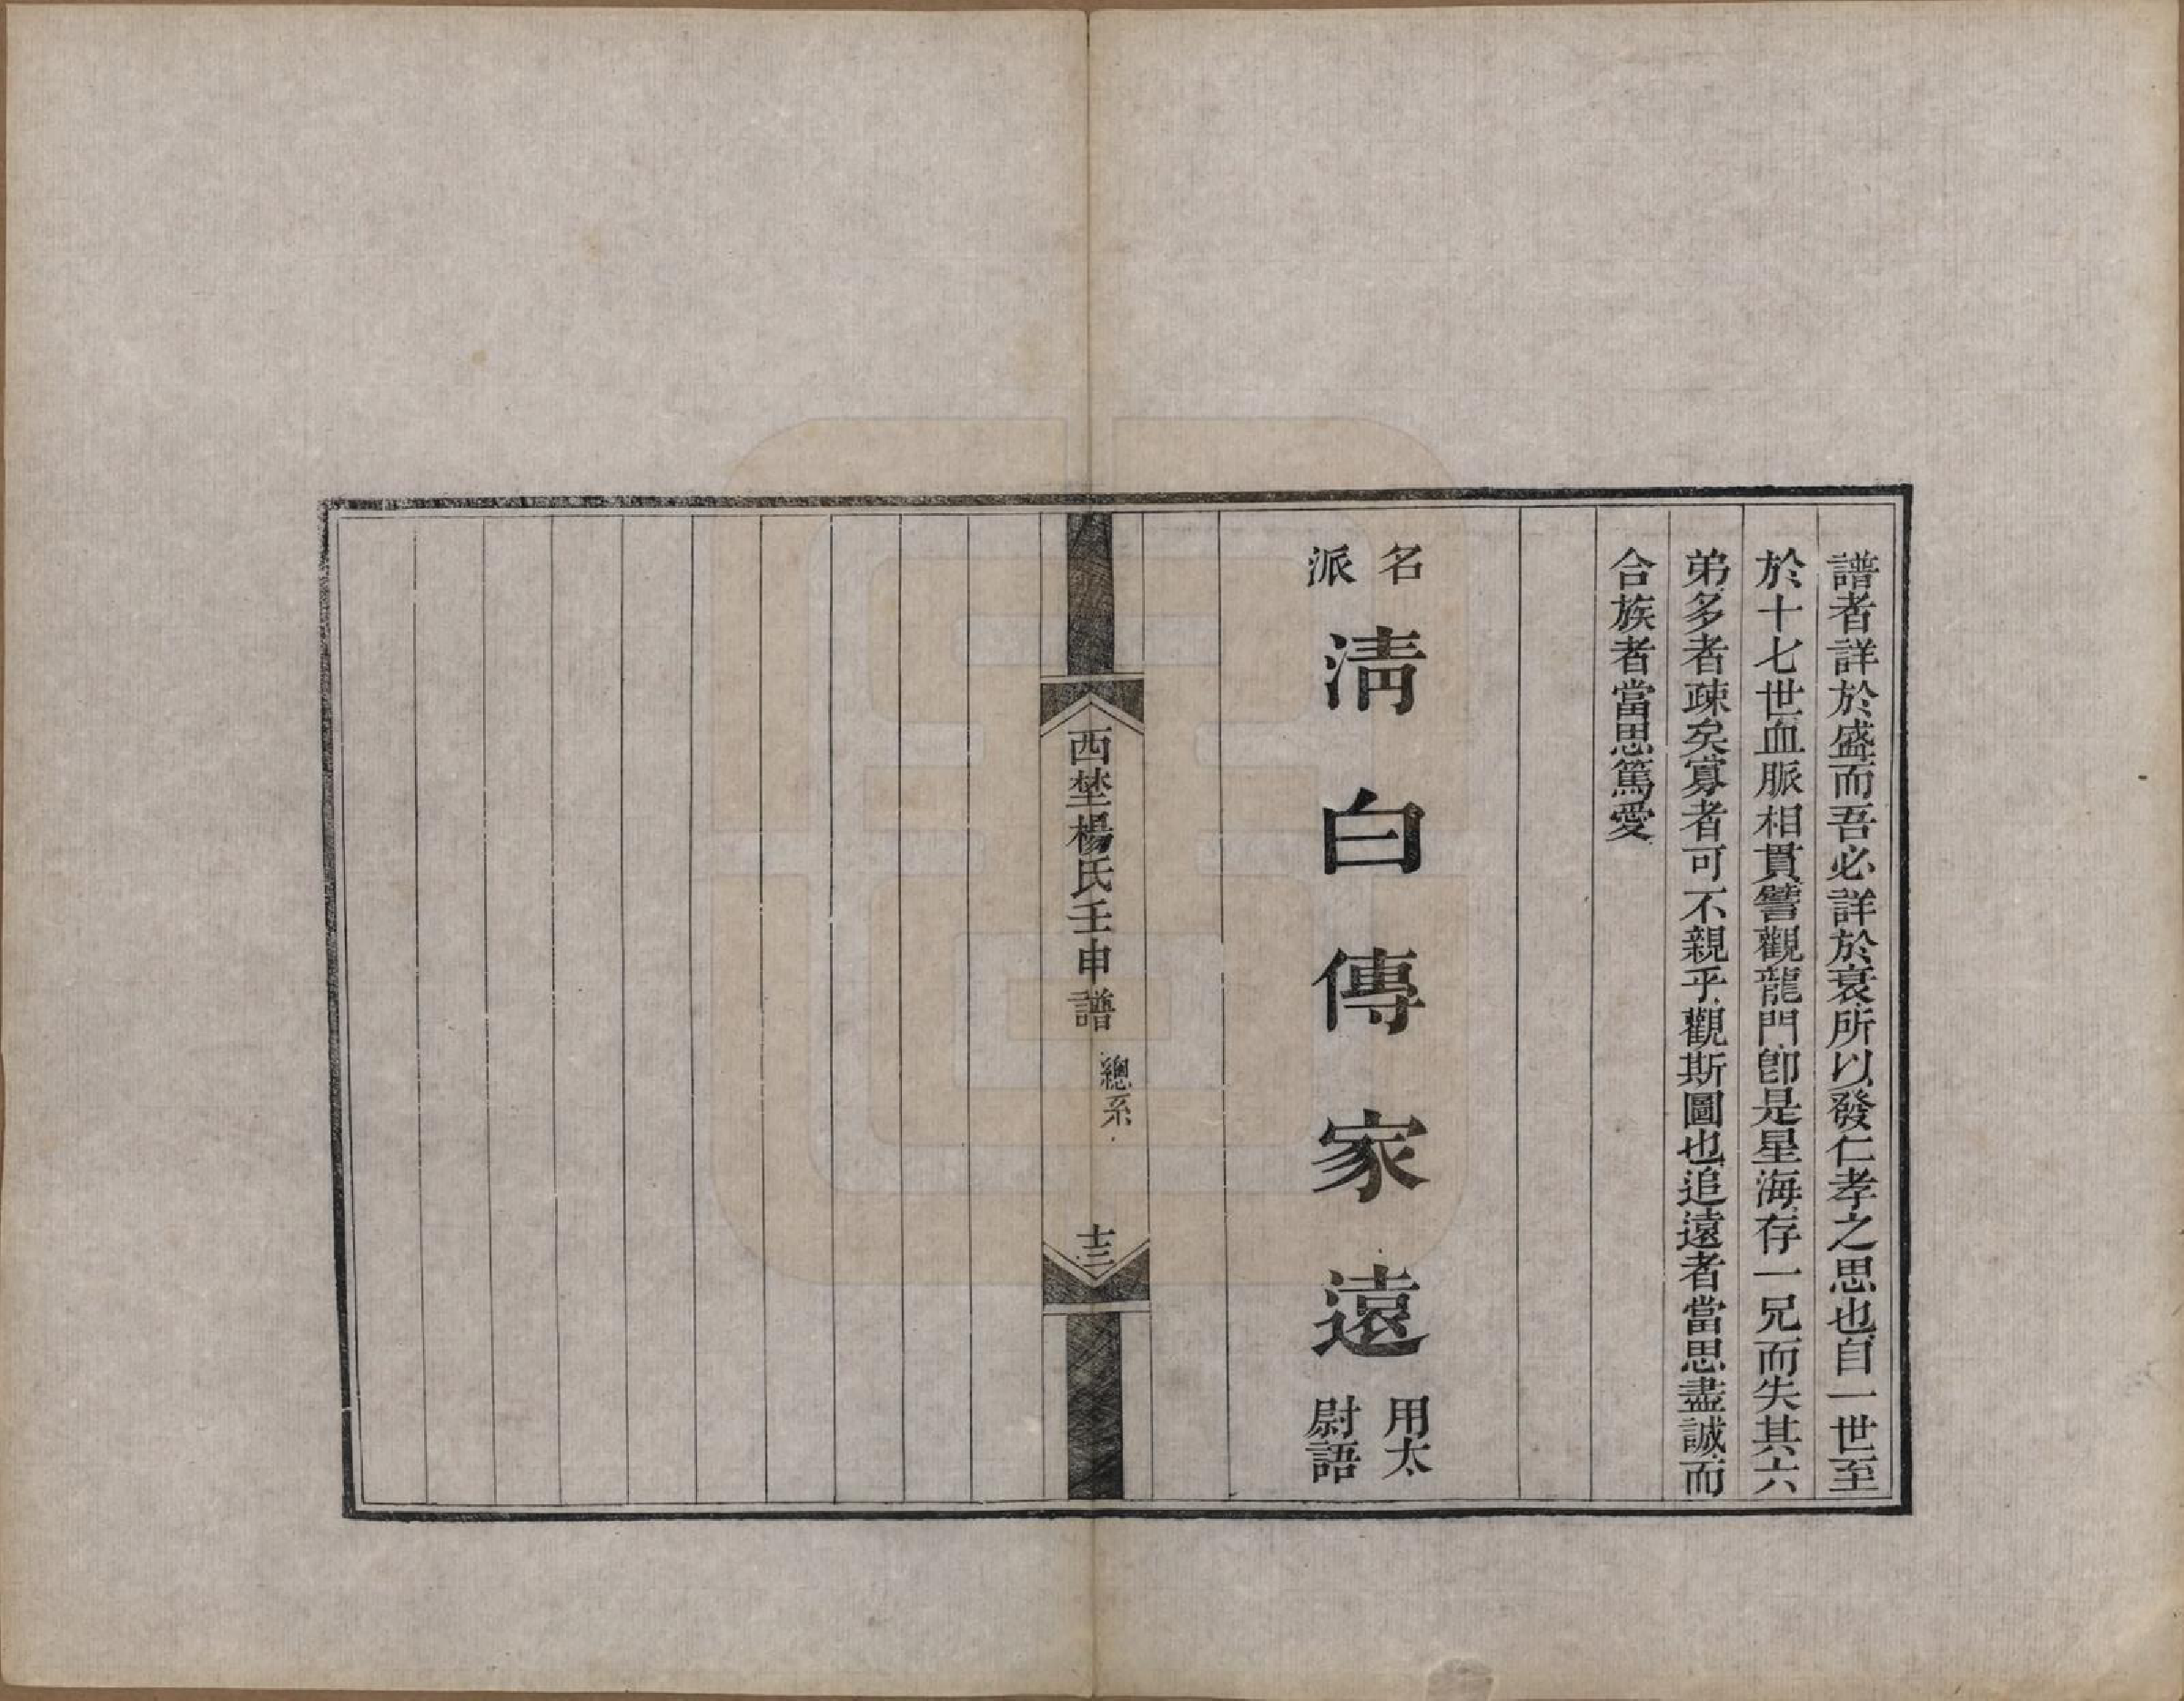 譜者詳於盛而吾必詳於衰所以發仁孝之思也自一世至
於十七世血脈相貫譬觀龍門卽是星海存一兄而失其六
弟多者疎矣寡者可不親乎觀斯圖也追遠者當思盡誠而
合族者當思篤愛
名派
淸白傳家遠
用太尉語
西埜楊氏壬申譜
總系
十三